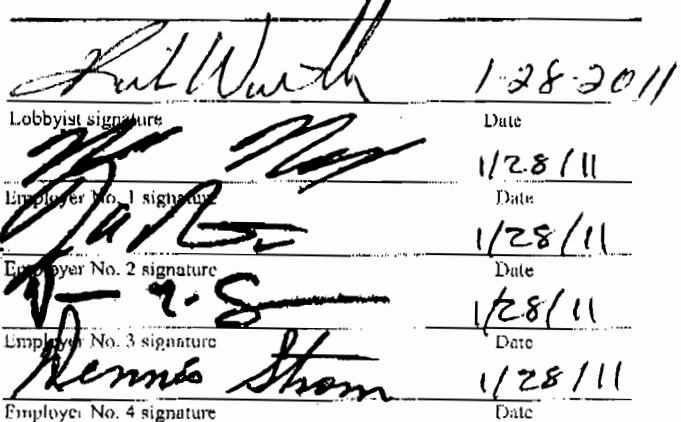 1-28-2011
Lobbyist signature Date
1/28/11
Employer No. 1 signature Date
1/28/11
Employer No. 2 signature Date
1/28/11
Employer No. 3 signature Date
Dennis Strom 1/28/11
Employer No. 4 signature Date